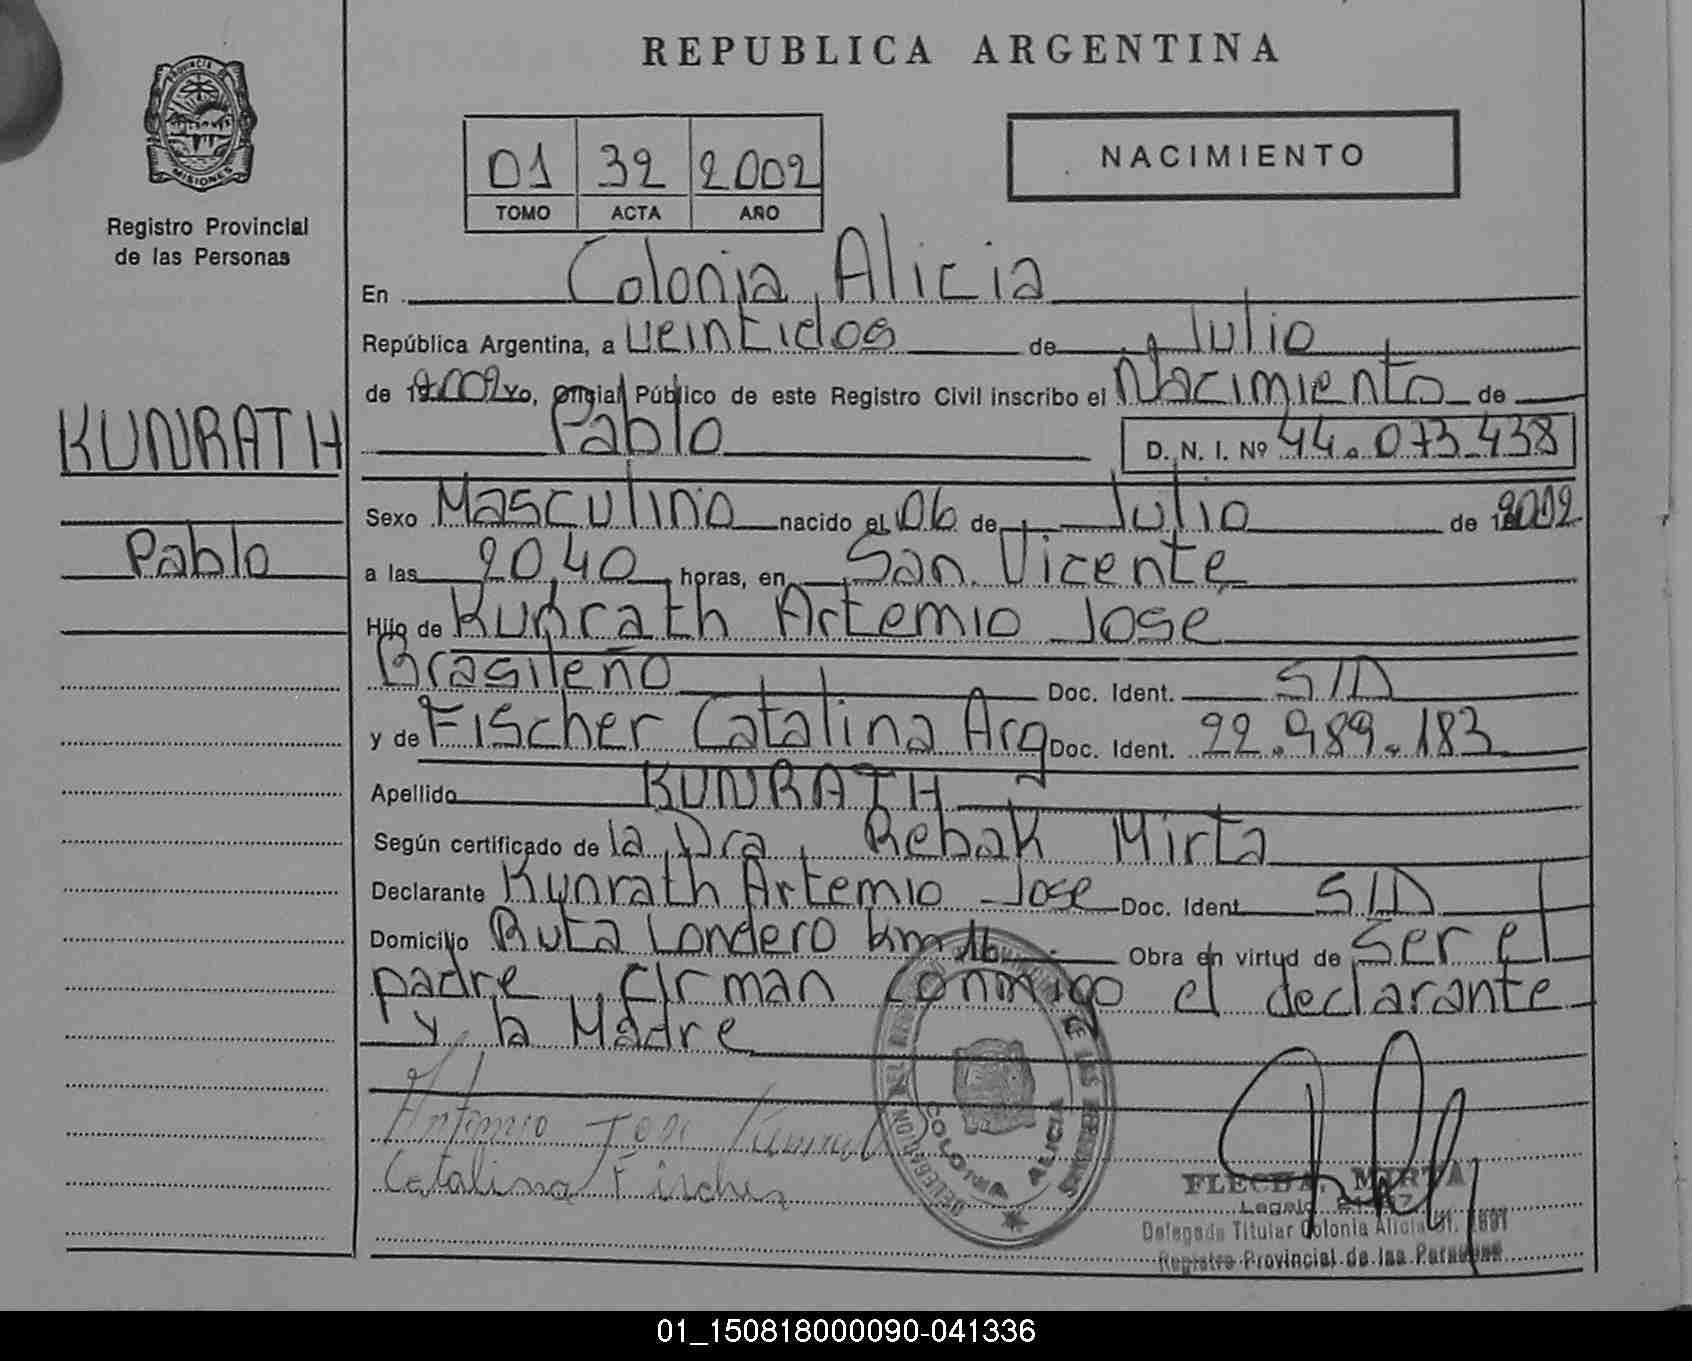 REPUBLICA ARGENTINA
PROVINCIA DE
MISIONES
Registro Provincial
de las Personas
01 32 2002
TOMO ACTA AÑO
NACIMIENTO
En Colonia Alicia
República Argentina, a veintidos de Julio
de 2002 yo, oficial Público de este Registro Civil inscribo el Nacimiento de
Pablo D. N. I. Nº 44.073.438
KUNRATH
Pablo
Sexo Masculino nacido el 06 de Julio de 2002
a las 20,40 horas, en San Vicente
Hijo de Kunrath Artemio Jose
Brasileño Doc. Ident. S/D
y de Fischer Catalina Arg Doc. Ident. 22.989.183
Apellido KUNRATH
Según certificado de la Dra. Rebak Mirta
Declarante Kunrath Artemio Jose Doc. Ident S/D
Domicilio Ruta Londero km 16 Obra en virtud de Ser el
padre, firman conmigo el declarante
y la Madre
Jose
Catalina Fischer
DELEGACION DEL DE LAS PERSONAS
COLONIA ALICIA
FLECHA, MIRTA
Legajo
Delegada Titular Colonia Alicia
Registro Provincial de las Personas
01_150818000090-041336